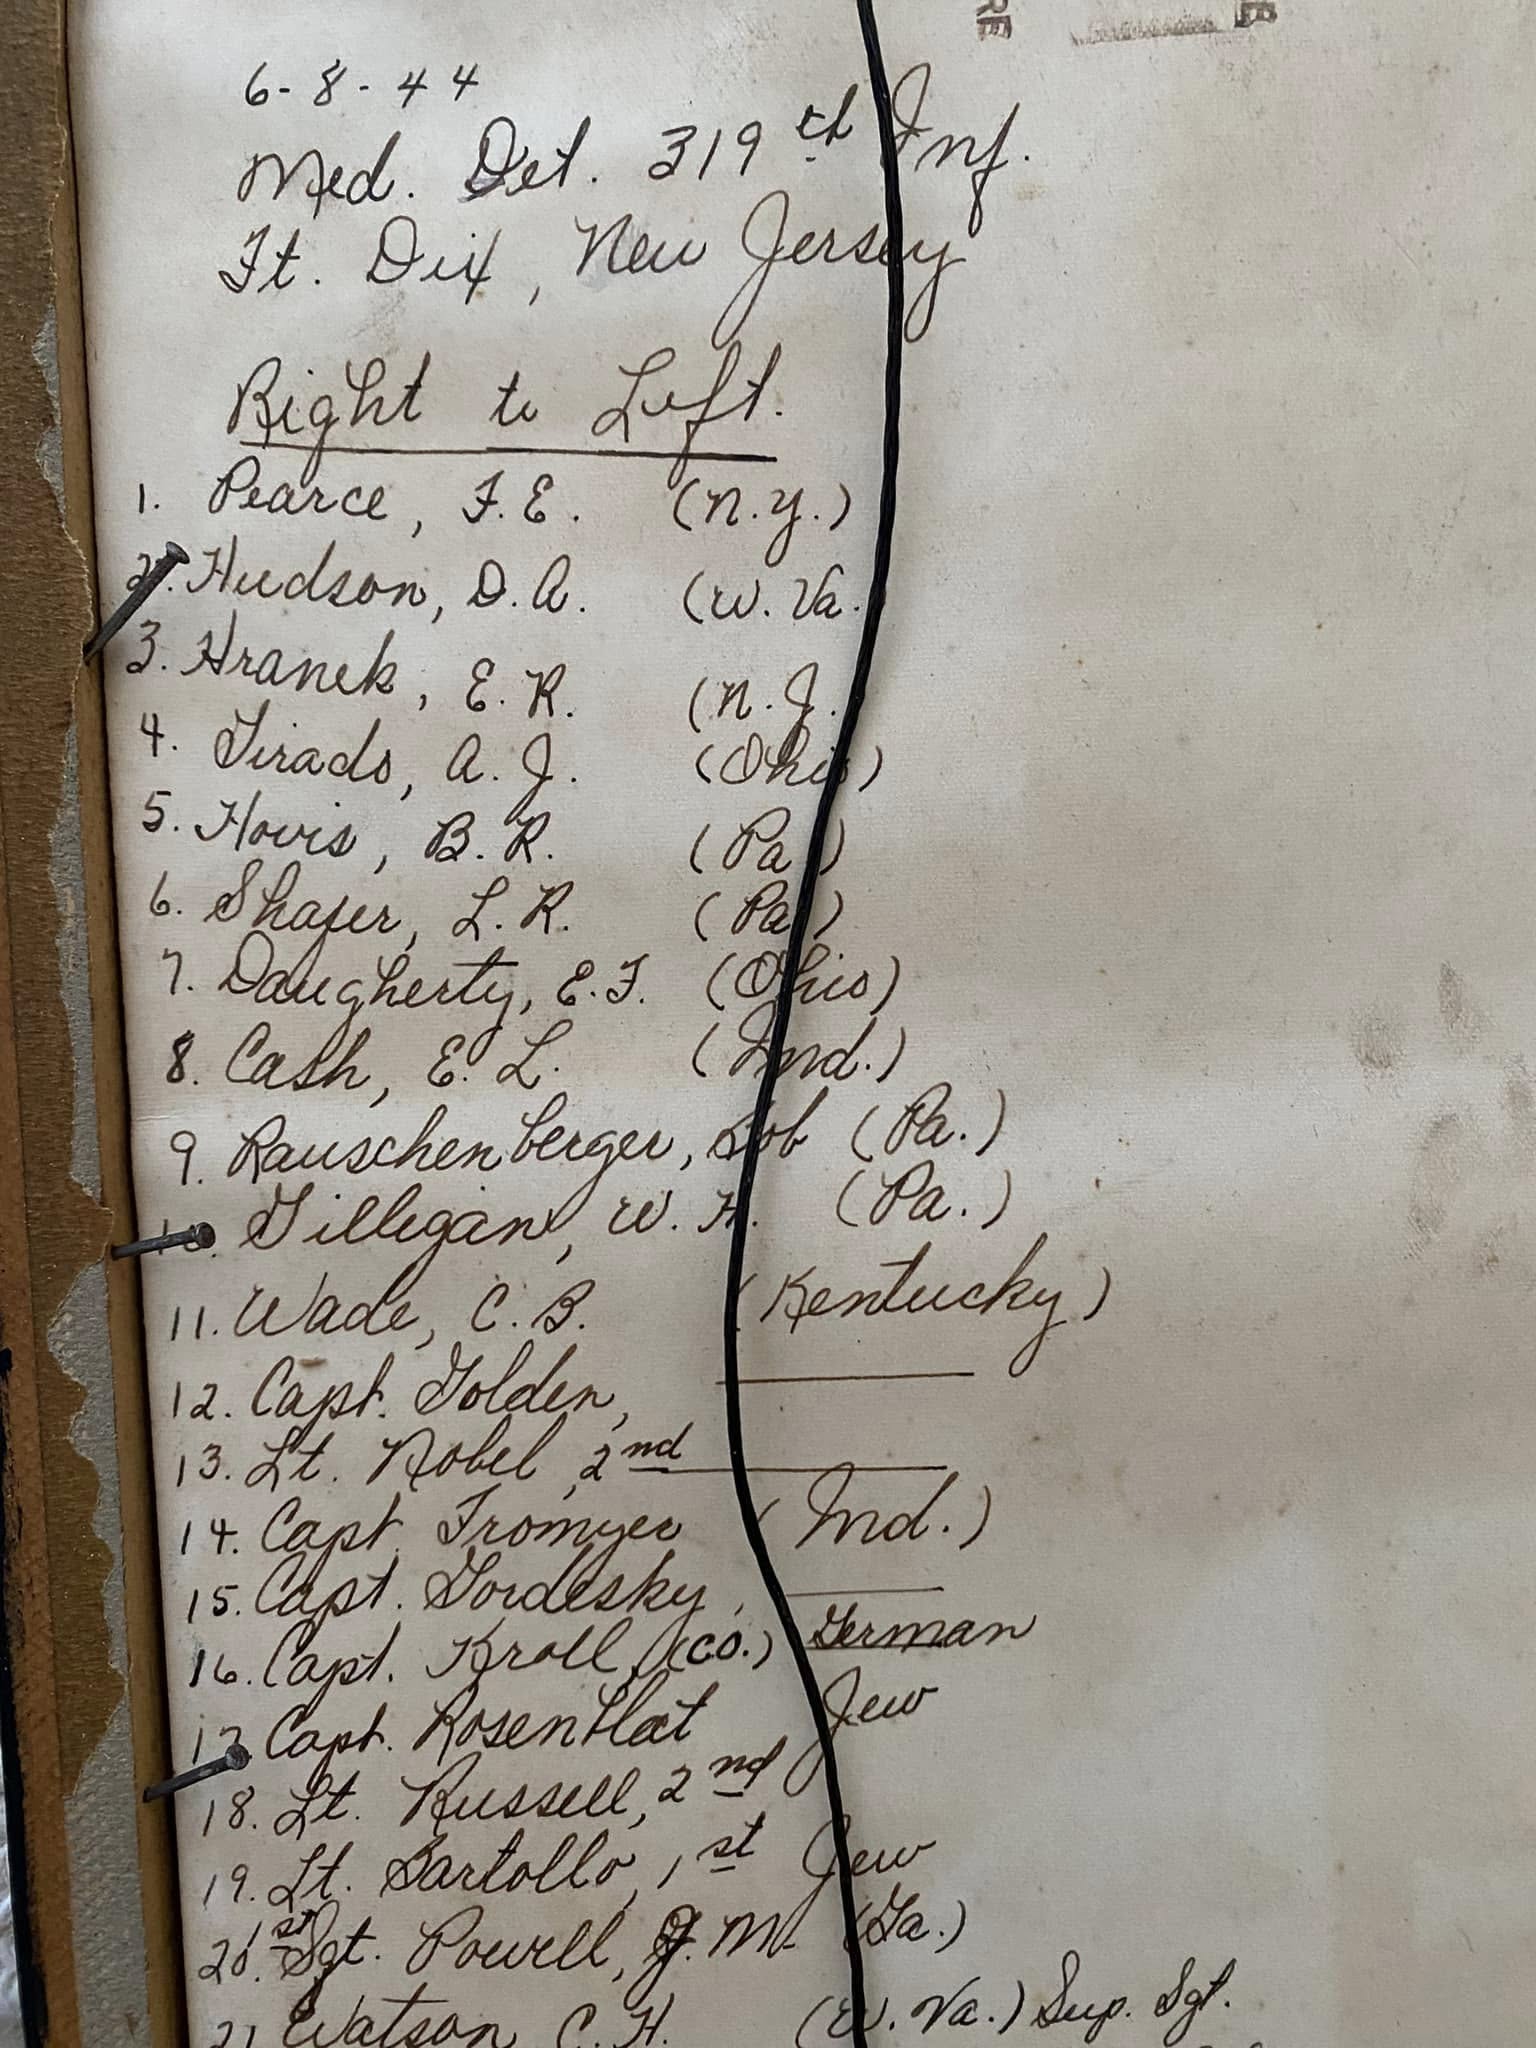 6-8-44
Med. Det. 319th Inf.
Ft. Dix, New Jersey
Right to Left.
1. Pearce, F.E. (N.Y.)
2. Hudson, D.A. (W. Va.
3. Hranek, E.R. (N.J.
4. Tirado, A.J. (Ohio)
5. Hovis, B.R. (Pa)
6. Shafer, L.R. (Pa)
7. Daugherty, E.F. (Ohio)
8. Cash, E.L. (Ind.)
9. Rauschenberger, Bob (Pa.)
10. Gillegan, W.H. (Pa.)
11. Wade, C.B. (Kentucky)
12. Capt. Golden,
13. Lt. Nobel, 2nd
14. Capt. Fromyer (Ind.)
15. Capt. Gordesky,
16. Capt. Kroll, (CO.) German
17. Capt. Rosenblat Jew
18. Lt. Russell, 2nd
19. Lt. Bartollo, 1st Jew
20. 1st Sgt. Powell, J.M. (Ga.)
21 Watson, C.H. (W. Va.) Sup. Sgt.